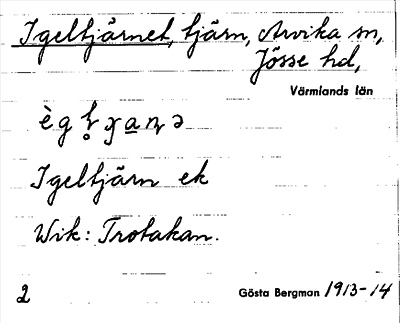 Igeltjärnet, tjärn, Arvika sn,
Jösse hd,
Värmlands län
Igeltjärn ek
Wik: Trotakan.
2 Gösta Bergman 1913-14